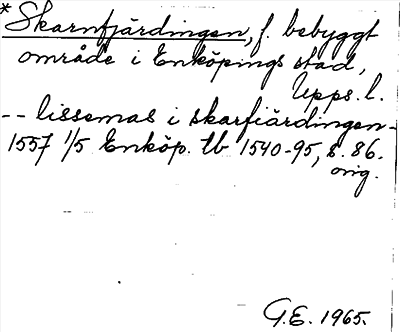 * Skarnfjärdingen, f. bebyggt
område i Enköpings stad,
Upps. l.
-- lissemas i skarfiärdingen -
1557 1/5 Enköp. tb 1540-95, s. 86.
orig.
G.E. 1965.